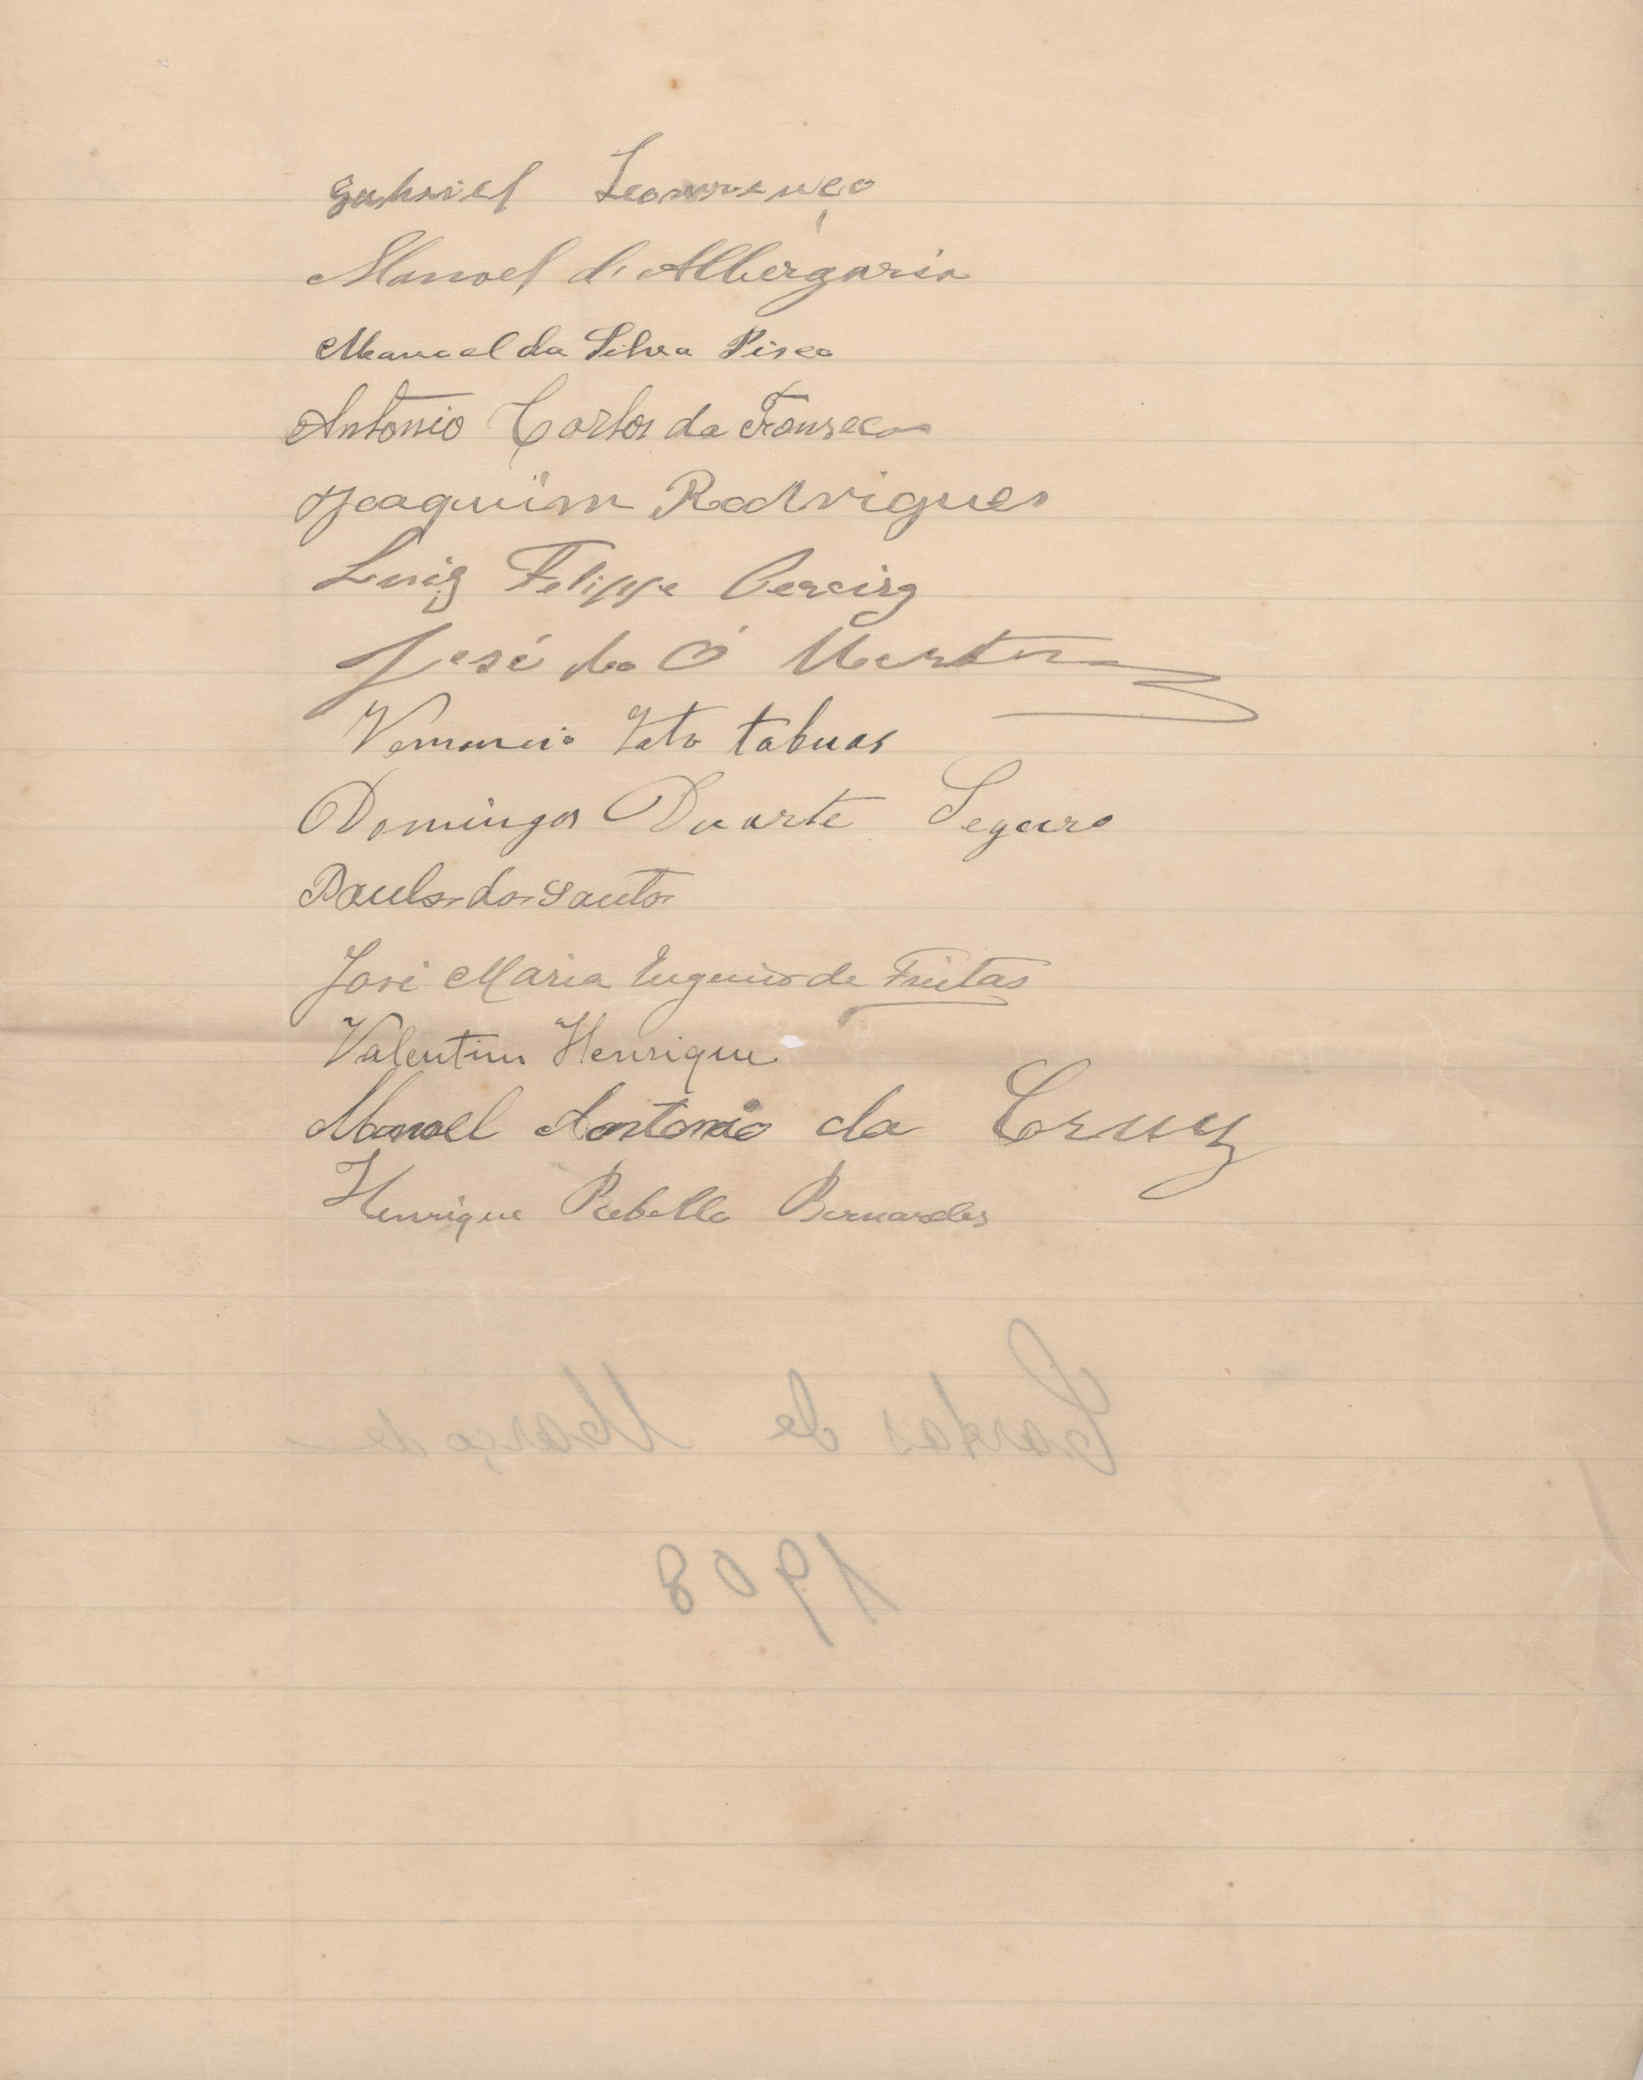 Gabriel Leourrenço
Manoel d'Albergaria
Manoel da Silva Pisco
Antonio Carlos da Fonseca
Joaquim Rodrigues
Luiz Felippe Pereira
José do Ó Martins
Venancio tabuas
Domingos Duarte Seguro
Paulo dos Santos
José Maria Eugenio de Freitas
Valentim Henrique
Manoel Antonio da Cruz
Henrique Rebello Bernardes
Cartas de Março de
1908